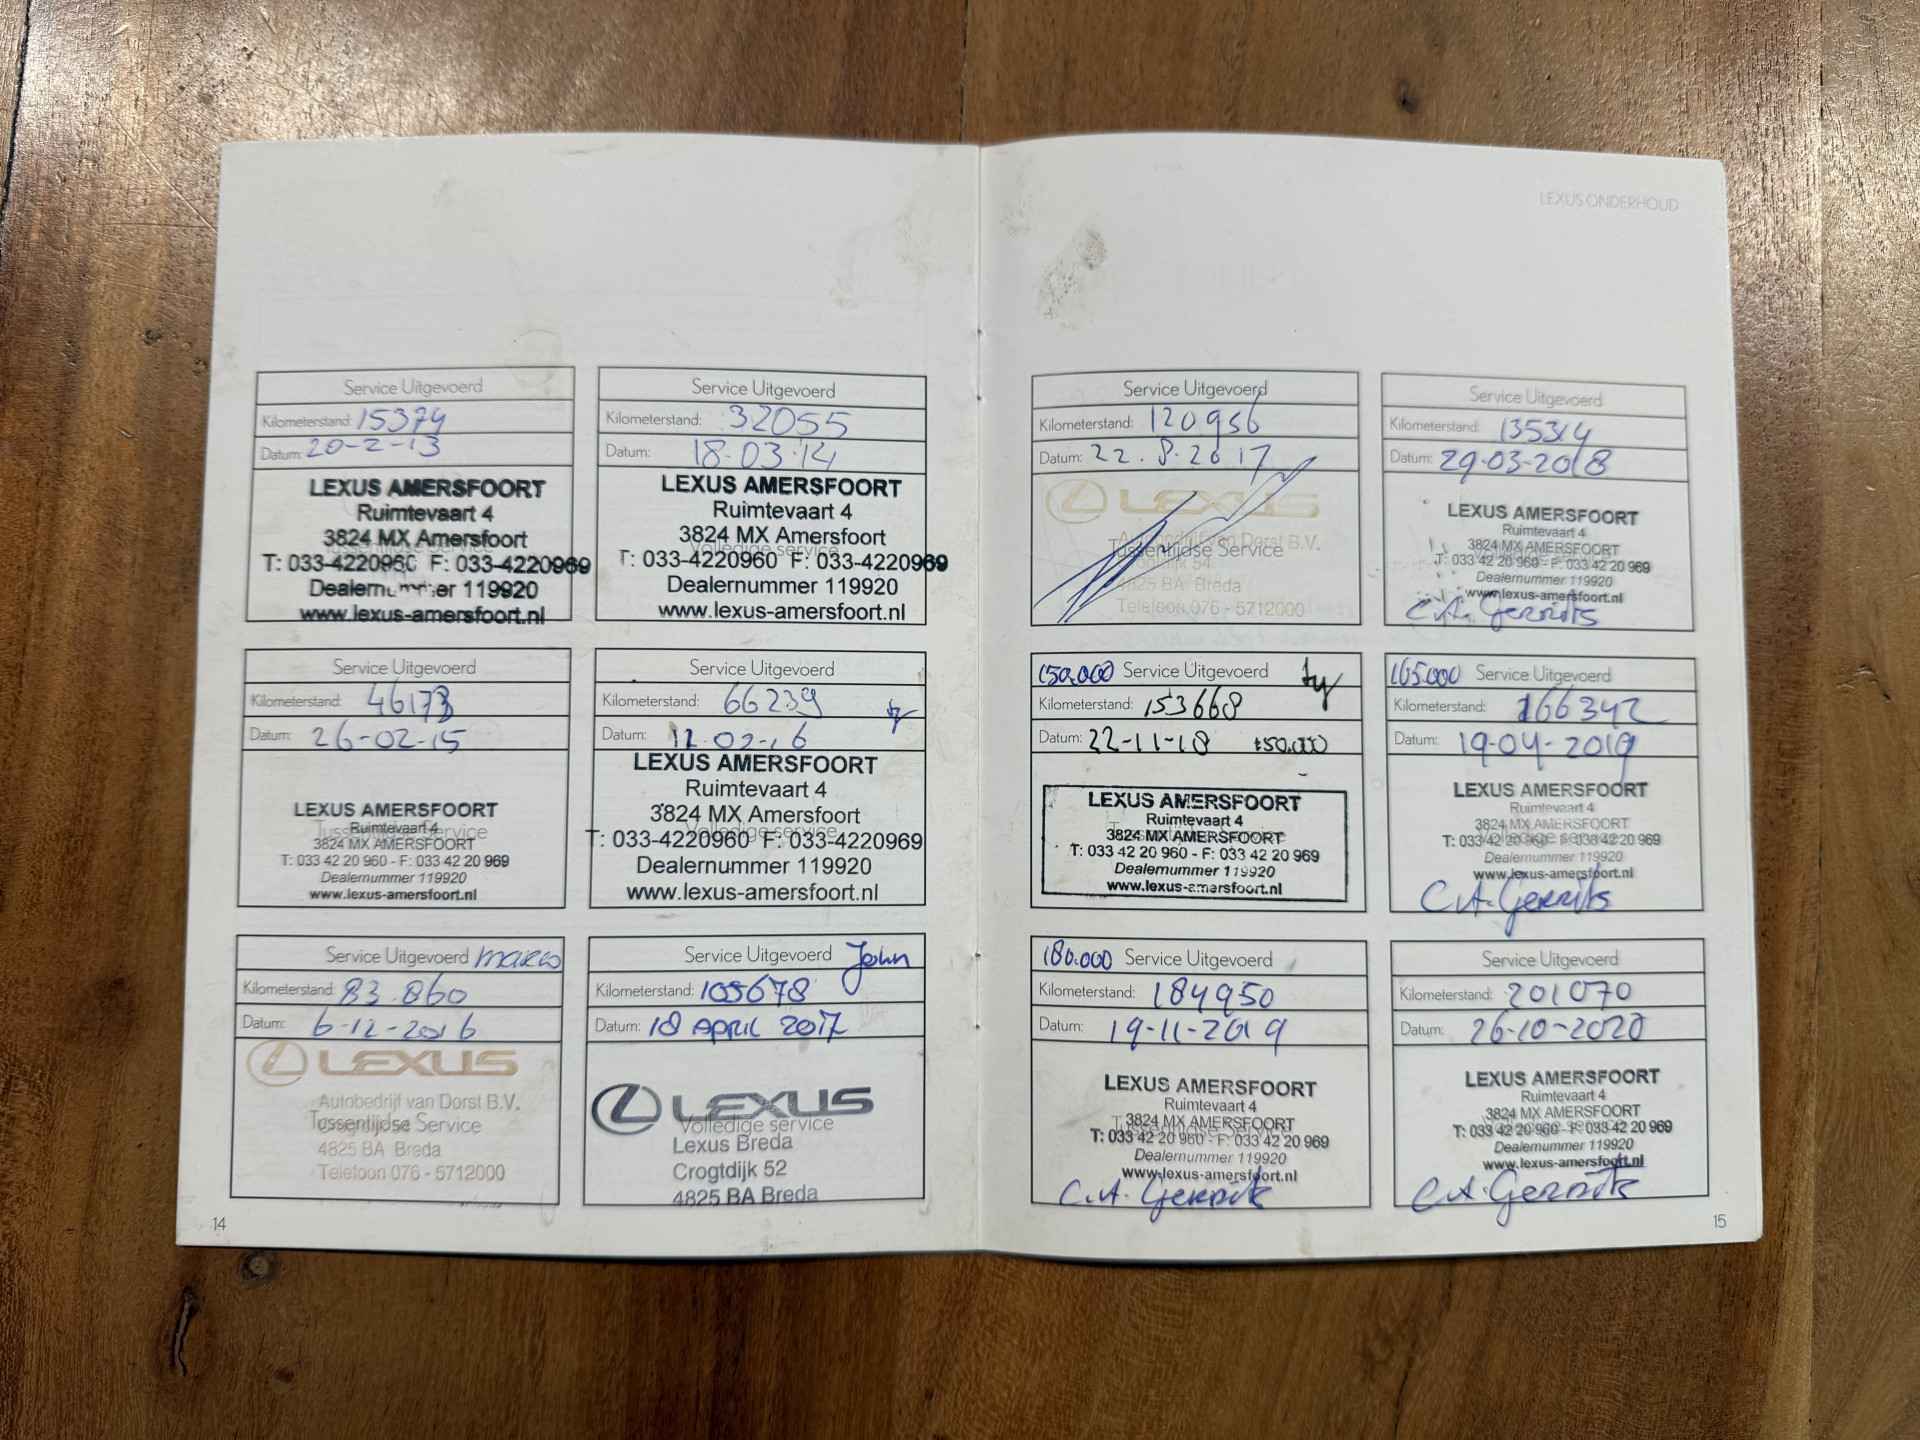 LEXUS ONDERHOUD
Service Uitgevoerd
Kilometerstand: 15374
Datum: 20-2-13
LEXUS AMERSFOORT
Ruimtevaart 4
3824 MX Amersfoort
T: 033-4220960 F: 033-4220969
119920
www.lexus-amersfoort.nl
Service Uitgevoerd
Kilometerstand: 32055
Datum: 18.03.14
LEXUS AMERSFOORT
Ruimtevaart 4
3824 MX Amersfoort
Volledige service
T: 033-4220960 F: 033-4220969
Dealernummer 119920
www.lexus-amersfoort.nl
Service Uitgevoerd
Kilometerstand: 46173
Datum: 26-02-15
LEXUS AMERSFOORT
Ruimtevaart 4
Tussentijdse Service
3824 MX AMERSFOORT
T: 033 42 20 960 - F: 033 42 20 969
Dealernummer 119920
www.lexus-amersfoort.nl
Service Uitgevoerd
Kilometerstand: 66239
Datum: 12-02-16
LEXUS AMERSFOORT
Ruimtevaart 4
3824 MX Amersfoort
Volledige service
T: 033-4220960 F: 033-4220969
Dealernummer 119920
www.lexus-amersfoort.nl
Service Uitgevoerd Marco
Kilometerstand: 83.860
Datum: 6-12-2016
LEXUS
Autobedrijf van Dorst B.V.
Tussentijdse Service
4825 BA Breda
Telefoon 076 - 5712000
Service Uitgevoerd John
Kilometerstand: 105678
Datum: 18 APRIL 2017
LEXUS
Volledige service
Lexus Breda
Crogtdijk 52
4825 BA Breda
14
Service Uitgevoerd
Kilometerstand: 120956
Datum: 22.8.2017
LEXUS
Autobedrijf van Dorst B.V.
Tussentijdse Service
4825 BA Breda
Telefoon 076 - 5712000
Service Uitgevoerd
Kilometerstand: 135314
Datum: 29-03-2018
LEXUS AMERSFOORT
Ruimtevaart 4
3824 MX AMERSFOORT
T: 033 42 20 960 - F: 033 42 20 969
Dealernummer 119920
www.lexus-amersfoort.nl
C.A. Gerrits
150.000 Service Uitgevoerd
Kilometerstand: 153668
Datum: 22-11-18 150.000
LEXUS AMERSFOORT
Ruimtevaart 4
3824 MX AMERSFOORT
T: 033 42 20 960 - F: 033 42 20 969
Dealernummer 119920
www.lexus-amersfoort.nl
165.000 Service Uitgevoerd
Kilometerstand: 166342
Datum: 19-04-2019
LEXUS AMERSFOORT
Ruimtevaart 4
3824 MX AMERSFOORT
Volledige service
T: 033 42 20 960 - F: 033 42 20 969
Dealernummer 119920
www.lexus-amersfoort.nl
C.A. Gerrits
180.000 Service Uitgevoerd
Kilometerstand: 184950
Datum: 19-11-2019
LEXUS AMERSFOORT
Ruimtevaart 4
3824 MX AMERSFOORT
Tussentijdse Service
T: 033 42 20 960 - F: 033 42 20 969
Dealernummer 119920
www.lexus-amersfoort.nl
C.A. Gerrits
Service Uitgevoerd
Kilometerstand: 201070
Datum: 26-10-2020
LEXUS AMERSFOORT
Ruimtevaart 4
3824 MX AMERSFOORT
T: 033 42 20 960 - F: 033 42 20 969
Dealernummer 119920
www.lexus-amersfoort.nl
C.A. Gerrits
15